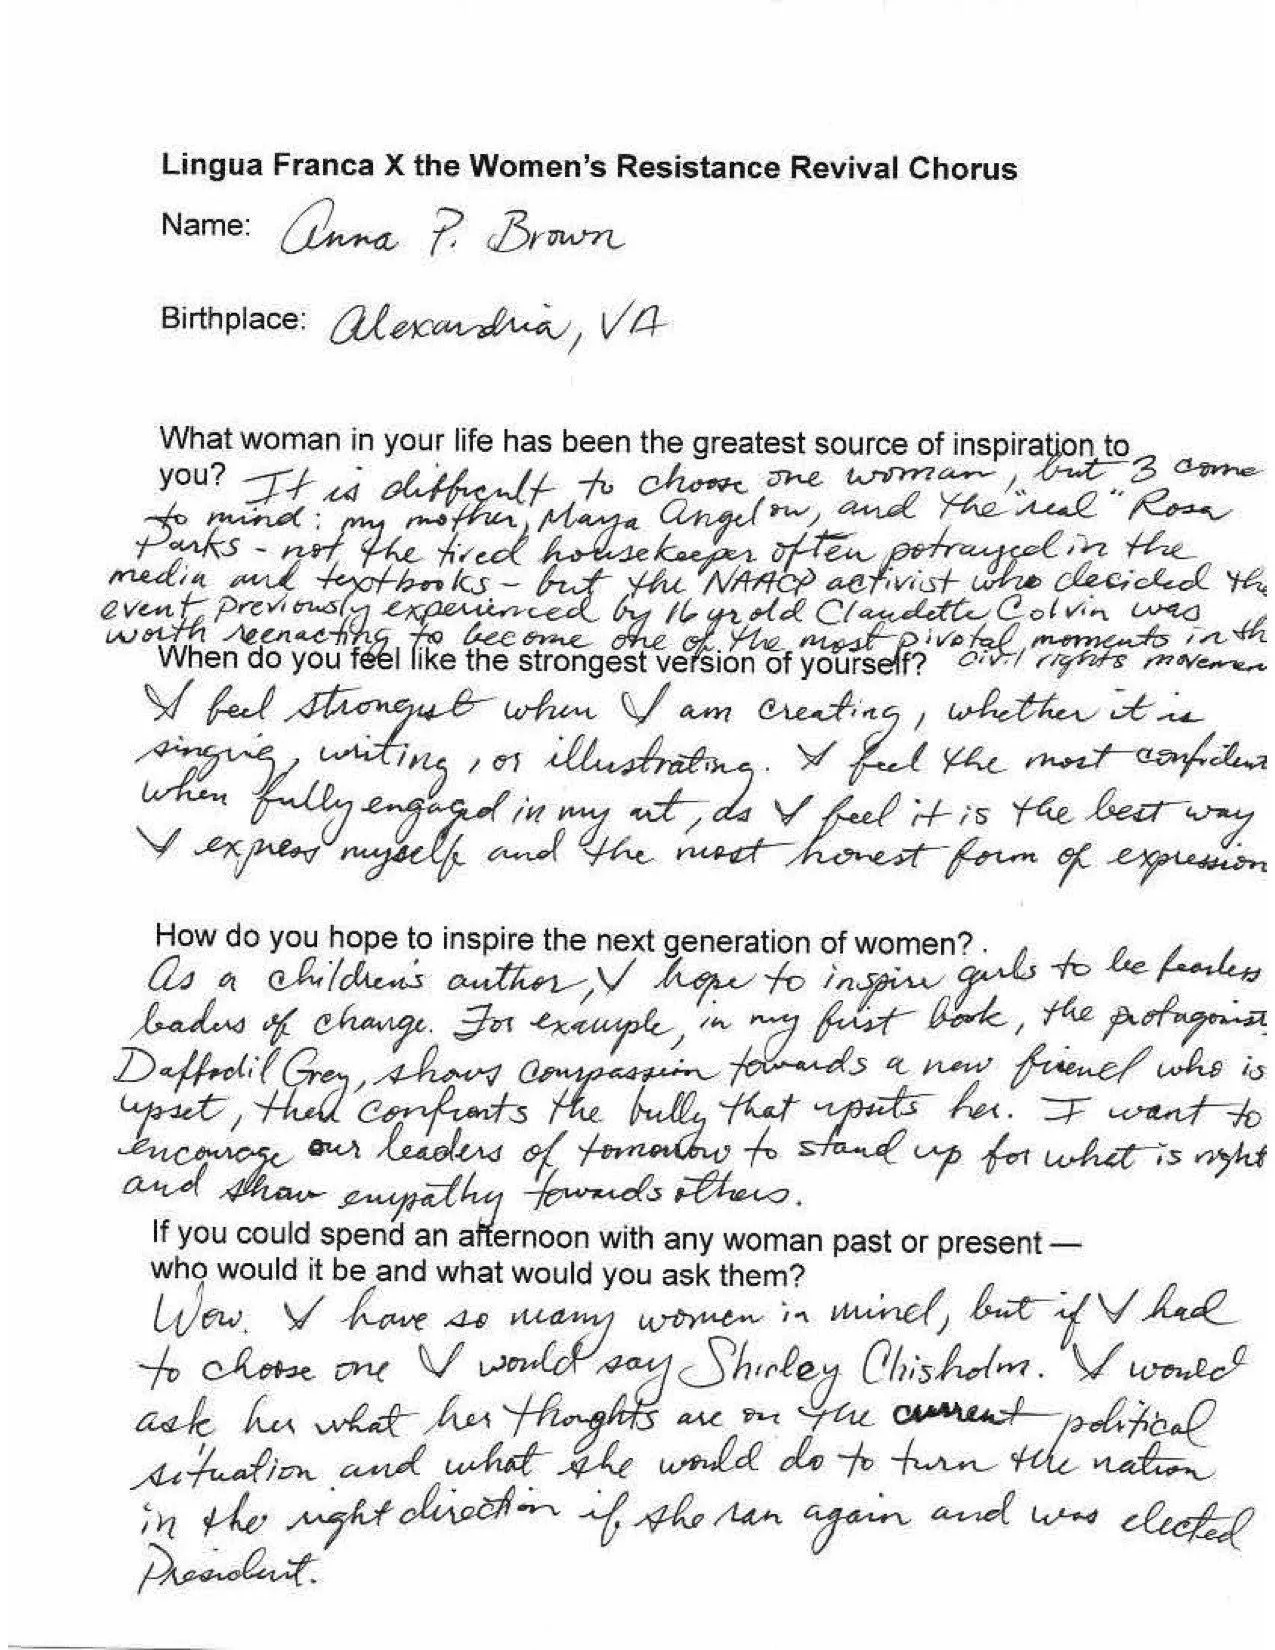 Lingua Franca X the Women's Resistance Revival Chorus
Name: Anna P. Brown
Birthplace: Alexandria, VA
What woman in your life has been the greatest source of inspiration to
you? It is difficult to choose one woman, but 3 come
to mind: my mother, Maya Angelou, and the "real" Rosa
Parks - not the tired housekeeper often potrayed in the
media and textbooks - but the NAACP activist who decided the
event previously experienced by 16 yr old Claudette Colvin was
worth reenacting to become one of the most pivotal moments in th
civil rights movemen
When do you feel like the strongest version of yourself?
I feel strongest when I am creating, whether it is
singing, writing, or illustrating. I feel the most confident
when fully engaged in my art, as I feel it is the best way
I express myself and the most honest form of expression
How do you hope to inspire the next generation of women?
As a children's author, I hope to inspire girls to be fearless
leaders of change. For example, in my first book, the protagonist,
Daffodil Grey, shows compassion towards a new friend who is
upset, then confronts the bully that upsets her. I want to
encourage our leaders of tomorrow to stand up for what is right
and show empathy towards others.
If you could spend an afternoon with any woman past or present —
who would it be and what would you ask them?
Wow. I have so many women in mind, but if I had
to choose one I would say Shirley Chisholm. I would
ask her what her thoughts are on the current political
situation and what she would do to turn the nation
in the right direction if she ran again and was elected
President.